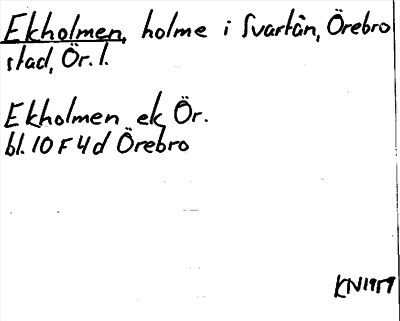 Ekholmen, holme i Svartån, Örebro
stad, Ör. l.
Ekholmen ek Ör.
bl. 10 F 4 d Örebro
KN 1959